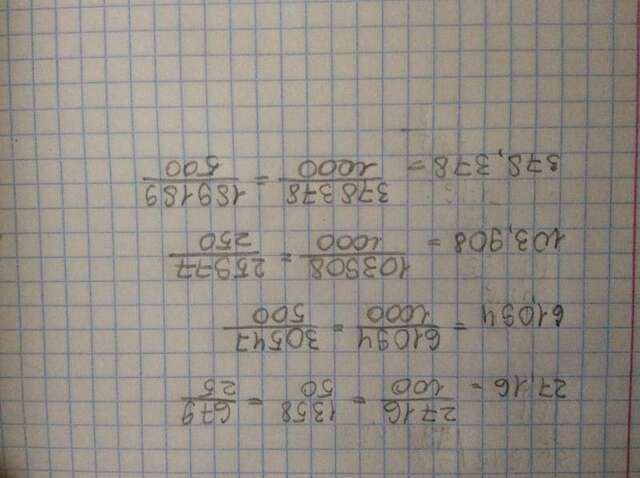 27,16 = 2716/100 = 1358/50 = 679/25
61,094 = 61094/1000 = 30547/500
103,908 = 103908/1000 = 25977/250
378,378 = 378378/1000 = 189189/500